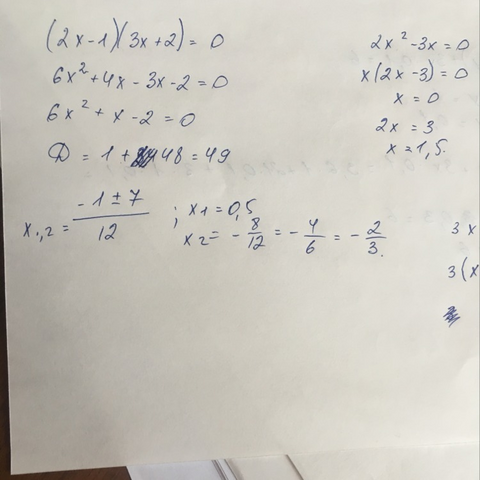 (2x-1)(3x+2)=0
6x²+4x-3x-2=0
6x²+x-2=0
D=1+48=49
x₁,₂= (-1±7)/12 ; x₁=0,5
x₂=-8/12=-4/6=-2/3.
2x²-3x=0
x(2x-3)=0
x=0
2x=3
x=1,5.
3x
3(x